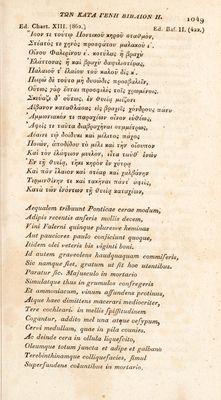 ΤΩΝ ΚΑΤΑ ΓΕΝΗ ΒΙΒΛΙΟΝ Η. 1049
Ed. Chart. XIII. (862.) Ed. Baf. II. (422.)
Ἴσον τι τούτῳ Ποντικοῦ κηροῦ σταθμὸν,
Στέατός τε χηνὸς προσφάτου μαλακοῦ
Οἴνου Φαλερίνου κοτύλας ἢ βραχὺ
Ἐλάττονας ἢ καὶ βραχὺ δαψιλεστέρας,
Παλαιοῦ ἐλαίου τοῦ καλοῦ δὶς
Πειρῶ δὲ τούτῳ μὴ δυσῶδες προσβαλεῖν,
Οὕτως γὰρ ἔσται προσφιλὲς τοῖς χρωμένοις.
Σκεύαζε δ' οὕτως, ἐν θυείῃ μείζονι
Λίβανον καταθλάσας εἰς βραχεῖς χόνδρους πάνυ
Ἀμμωνιακόν τε παραχέων οἶνον εὐθέως,
Ἀφεὶς τε ταῦτα διαβραχῆναι συμμέτρως,
καὶ μέλιτος πάχος
Ποιῶν, ἀποδίδου τὸ μέλι καὶ τὴν οἴσυπον
Καὶ τὸν ἐλάφειον μυελὸν, εἶτα ταῦθ' ἑνῶν
Ἐν τῇ θυείῃ, τῆκε κηρὸν ἐν χύτρᾳ
Καὶ πᾶν ἔλαιον καὶ στέαρ καὶ χαλβάνην
Τερμινθίνην τε καὶ τακῆναι πάντ' ἀφεὶς,
Κατὰ τῶν ἑνόντων τῇ θυείῃ καταχέων,
Aequalem tribuunt Ponticae cerae modum,
Adipis recentis anferis mollis decem,
Vini Falerni quinque pluresve heminas
Aut pauciores paulo conficiunt quoque,
Itidem olei veteris bis viginti boni.
Id autem graveolens haudquaquam commiferis,
Sic namque fiet, gratum ut fit hoc utentibus.
Paratur fic. Majusculo in mortario
Simulatque thus in grumulos confregeris
Et ammoniacum, vinum affundens protinus,
Atque haec dimittens macerari mediocriter,
Tere cochleari. in mellis fpiffitudinem
Cogantur, addito mel una atque oefypum,
Cervi medullam, quae in pila counies.
Ac deinde cera in ollula liquefcito,
Oleumque totum juncta et adipe et galbano
Terebinthinamque colliquefacies, fimul
Superfundens colantibus in mortario,